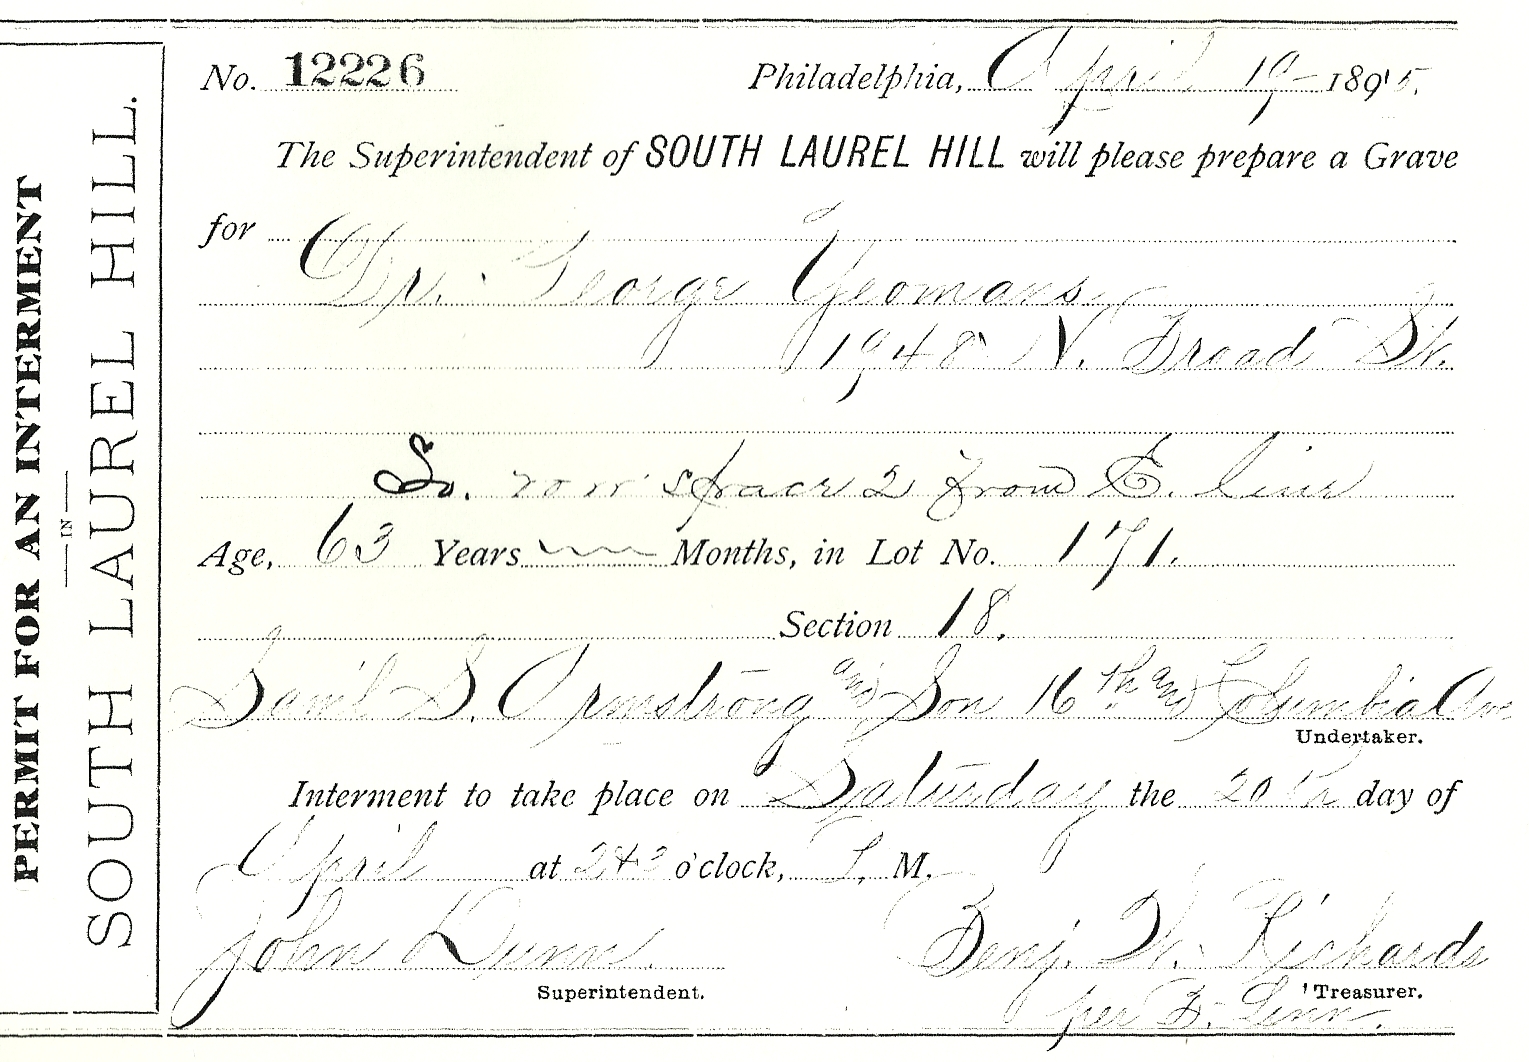 PERMIT FOR AN INTERMENT
IN
SOUTH LAUREL HILL.
No. 12226 Philadelphia, April 19 1895.
The Superintendent of SOUTH LAUREL HILL will please prepare a Grave
for
Dr. George Yeomans
1948 N. Broad St.
So. row space 2 from E. line
Age, 63 Years Months, in Lot No. 171.
Section 18.
Sam'l S. Armstrong and Son 16th and Columbia Ave
Undertaker.
Interment to take place on Saturday the 20th day of
April at 2 & 3 o'clock, P. M.
John Dunn. Benj. W. Richards
Superintendent. Treasurer.
per B. Linn.